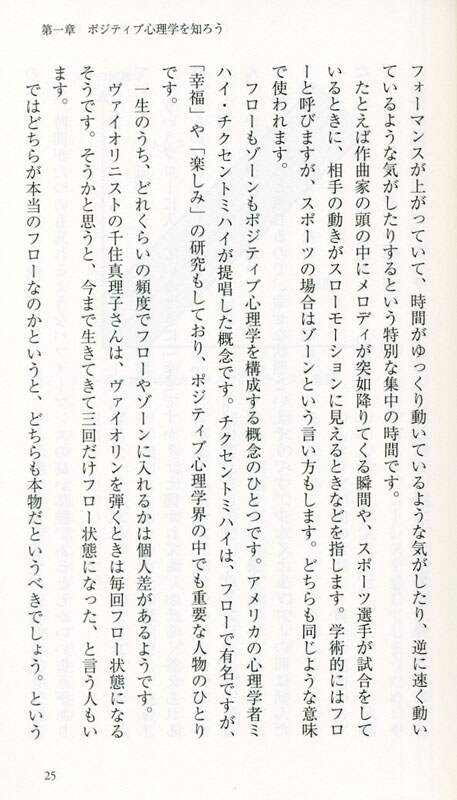 第一章　ポジティブ心理学を知ろう
フォーマンスが上がっていて、時間がゆっくり動いているような気がしたり、逆に速く動い
ているような気がしたりするという特別な集中の時間です。
たとえば作曲家の頭の中にメロディが突如降りてくる瞬間や、スポーツ選手が試合をして
いるときに、相手の動きがスローモーションに見えるときなどを指します。学術的にはフロ
ーと呼びますが、スポーツの場合はゾーンという言い方もします。どちらも同じような意味
で使われます。
フローもゾーンもポジティブ心理学を構成する概念のひとつです。アメリカの心理学者ミ
ハイ・チクセントミハイが提唱した概念です。チクセントミハイは、フローで有名ですが、
「幸福」や「楽しみ」の研究もしており、ポジティブ心理学界の中でも重要な人物のひとり
です。
一生のうち、どれくらいの頻度でフローやゾーンに入れるかは個人差があるようです。
ヴァイオリニストの千住真理子さんは、ヴァイオリンを弾くときは毎回フロー状態になる
そうです。そうかと思うと、今まで生きてきて三回だけフロー状態になった、と言う人もい
ます。
ではどちらが本当のフローなのかというと、どちらも本物だというべきでしょう。という
25